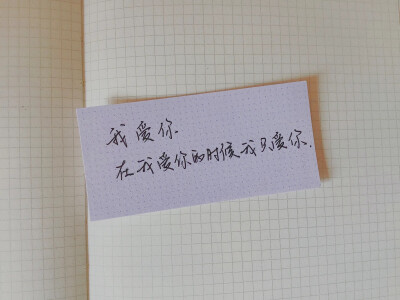 我爱你
在我爱你的时候我只爱你.